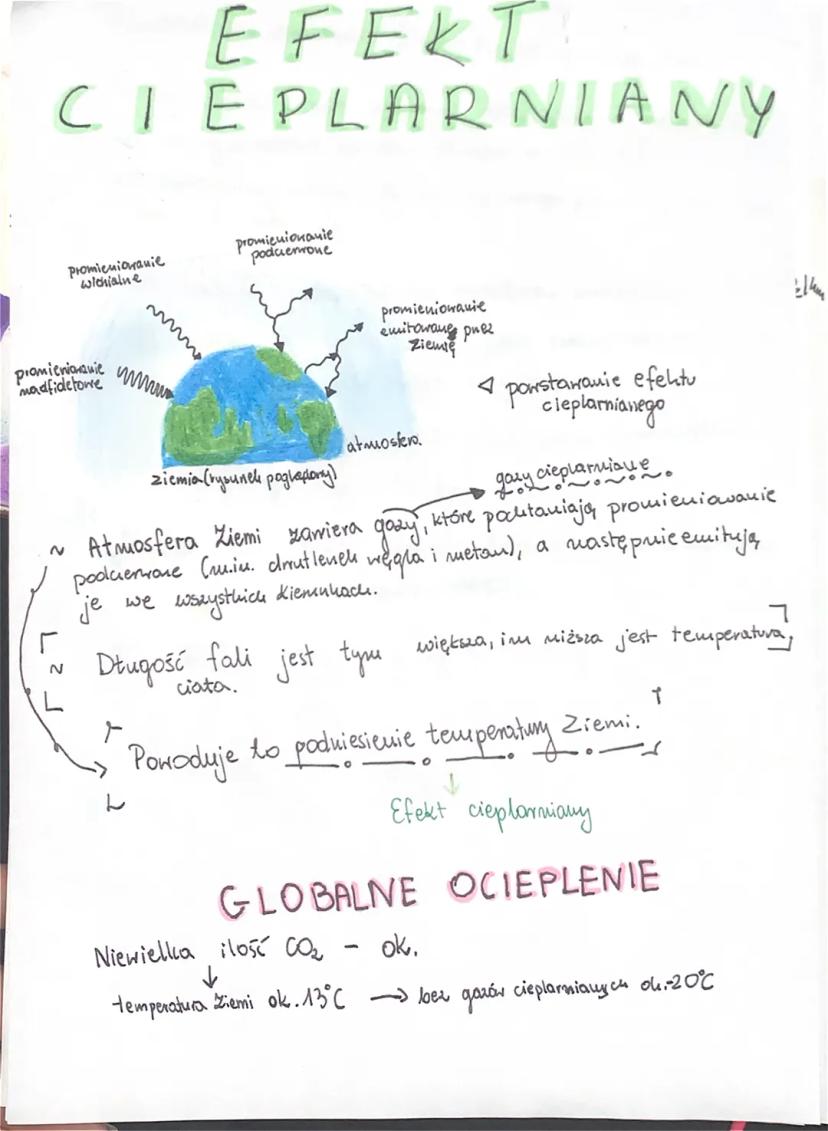 EFEKT
CIEPLARNIANY
promieniowanie
podczerwone
promieniowanie
widzialne
promieniowanie
emitowane przez
Ziemię
promieniowanie
nadfioletowe
◁ powstawanie efektu
cieplarnianego
atmosfera
ziemia (rysunek poglądowy)
gazy cieplarniane
~ Atmosfera Ziemi zawiera gazy, które pochłaniają promieniowanie
podczerwone (m.in. dwutlenek węgla i metan), a następnie emitują
je we wszystkich kierunkach.
~ Długość fali jest tym większa, im niższa jest temperatura
ciała.
Powoduje to podniesienie temperatury Ziemi.
Efekt cieplarniany
GLOBALNE OCIEPLENIE
Niewielka ilość CO₂ - ok.
temperatura Ziemi ok. 13°C → bez gazów cieplarnianych ok. -20°C